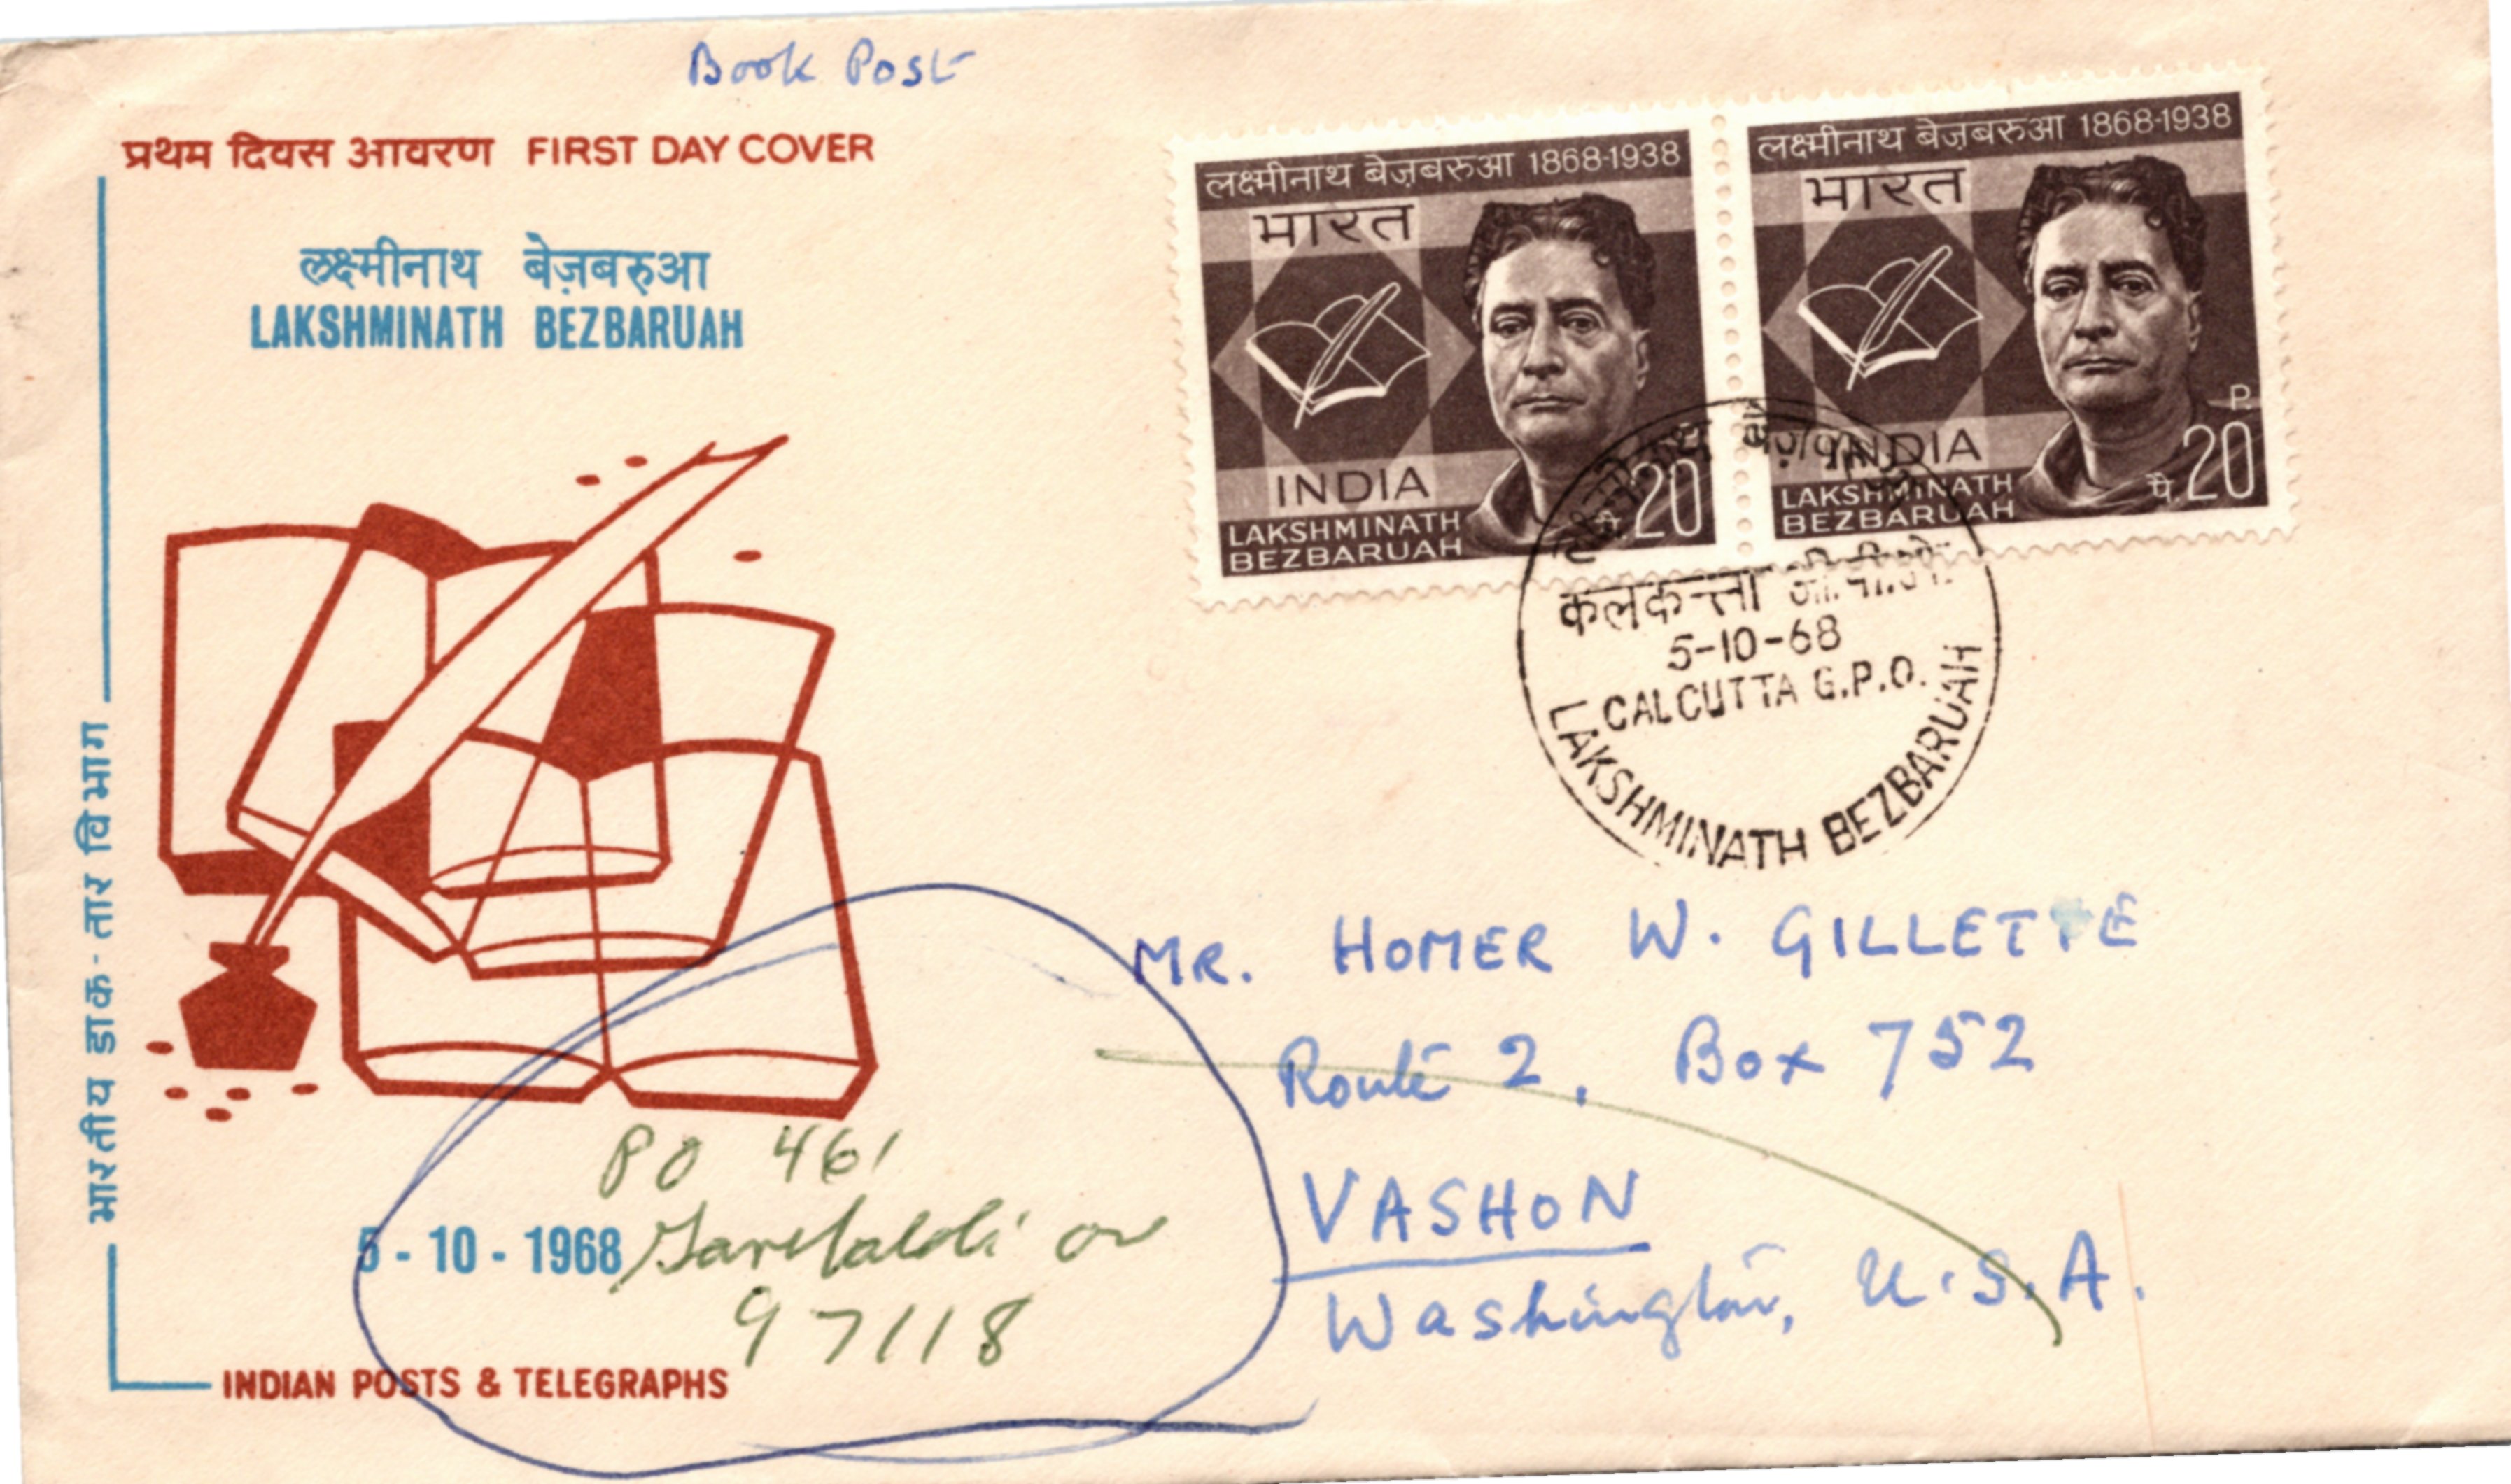 Book Post
प्रथम दिवस आवरण FIRST DAY COVER
लक्ष्मीनाथ बेज़बरुआ
LAKSHMINATH BEZBARUAH
भारतीय डाक-तार विभाग
5 - 10 - 1968
INDIAN POSTS & TELEGRAPHS
लक्ष्मीनाथ बेज़बरुआ 1868-1938
भारत
INDIA
LAKSHMINATH
BEZBARUAH
20
लक्ष्मीनाथ बेज़बरुआ 1868-1938
भारत
INDIA
LAKSHMINATH
BEZBARUAH
P.
पै. 20
कलकत्ता जी.पी.ओ.
5-10-68
CALCUTTA G.P.O.
LAKSHMINATH BEZBARUAH
MR. HOMER W. GILLETTE
Route 2, Box 752
VASHON
Washington, U.S.A.
PO 461
Garibaldi or
97118